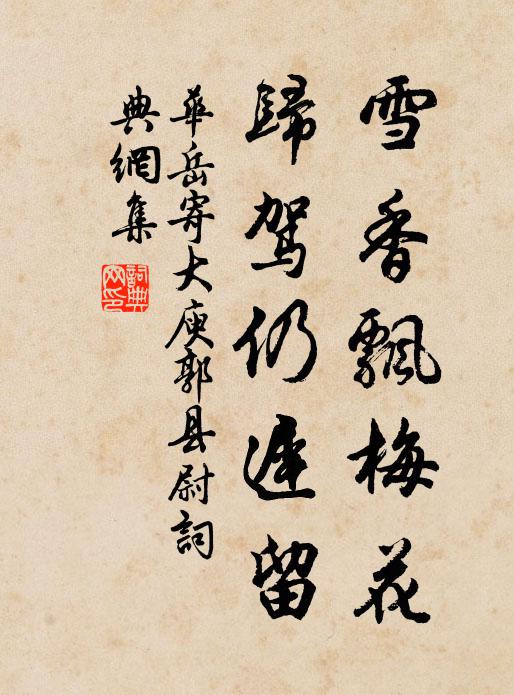 雪香飄梅花
歸駕仍遲留
華岳寄大庾郭县尉詞
典網集
詞典網印